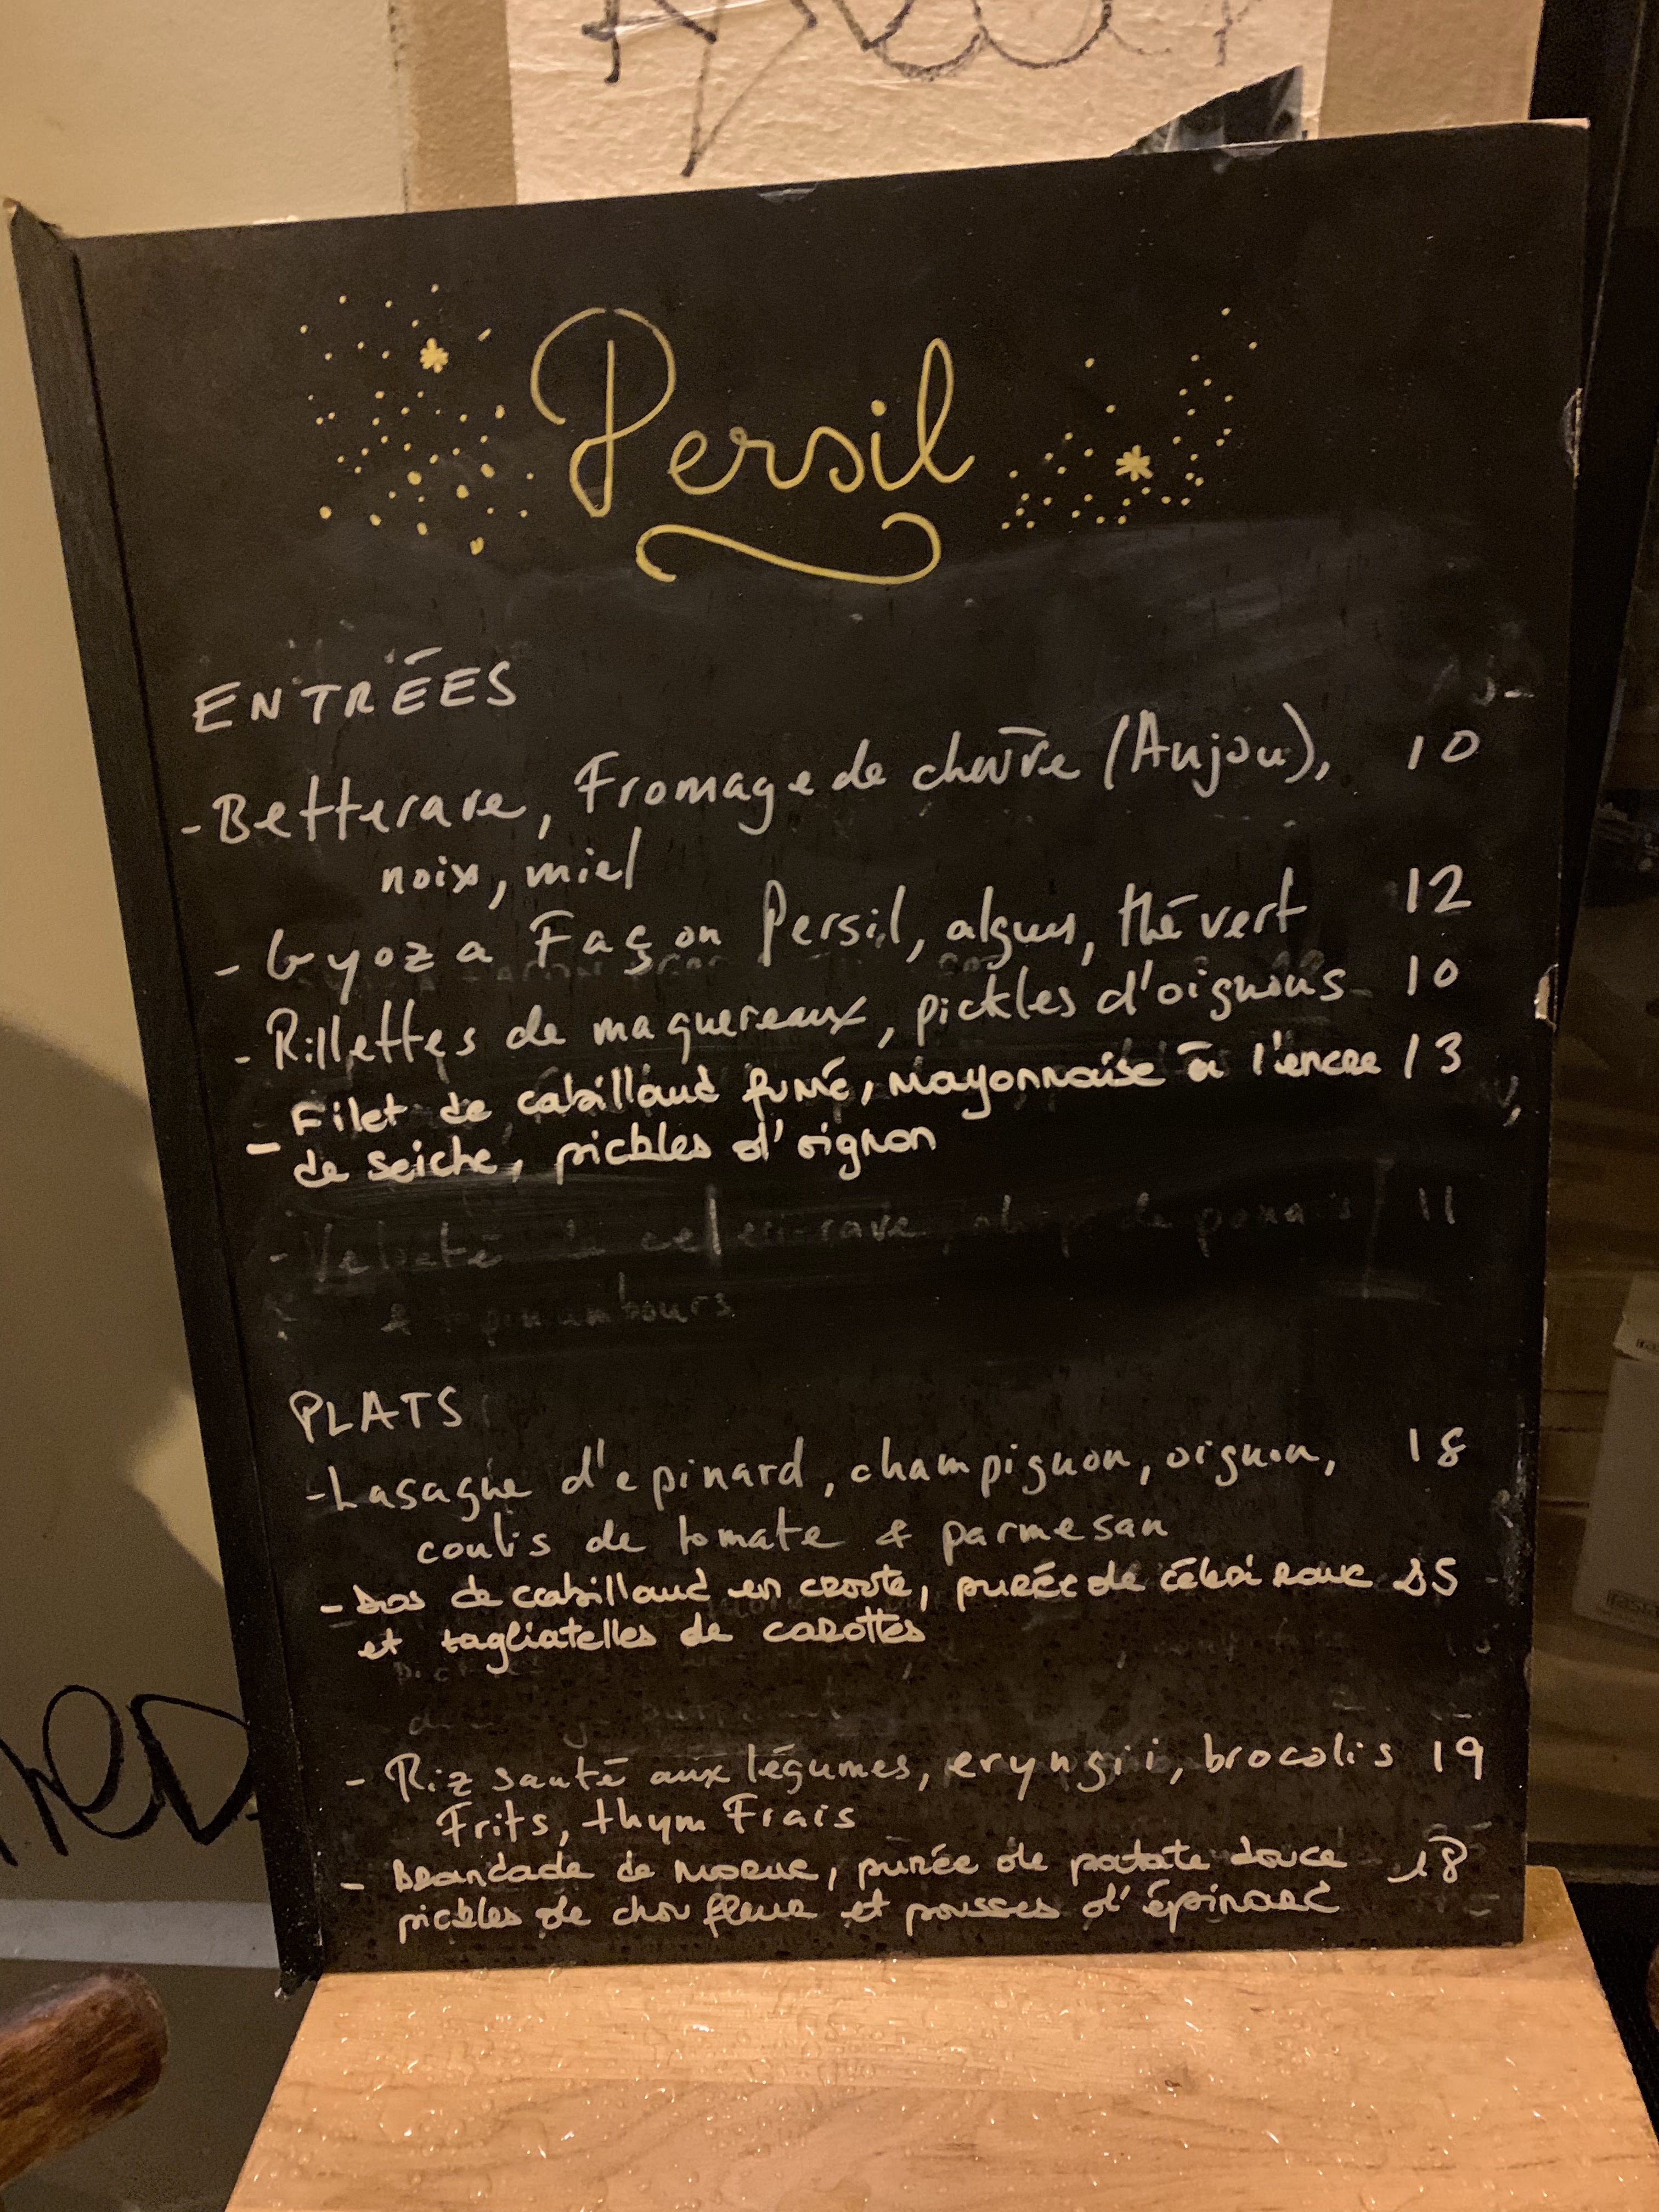 Persil
ENTRÉES
- Betterave, Fromage de chèvre (Anjou), 10
noix, miel
- Gyoza Façon Persil, algues, thé vert 12
- Rillettes de maquereaux, pickles d'oignons 10
- Filet de cabillaud fumé, mayonnaise à l'encre 13
de seiche, pickles d'oignon
- Velouté de celeri-rave, de panais 11
& topinambours
PLATS
- Lasagne d'epinard, champignon, oignon, 18
coulis de tomate & parmesan
- Dos de cabillaud en croute, purée de céleri rave 25
et tagliatelles de carottes
- Riz sauté aux légumes, eryngii, brocolis 19
Frits, thym Frais
- Brandade de morue, purée de patate douce 18
pickles de chou fleur et pousses d'épinard